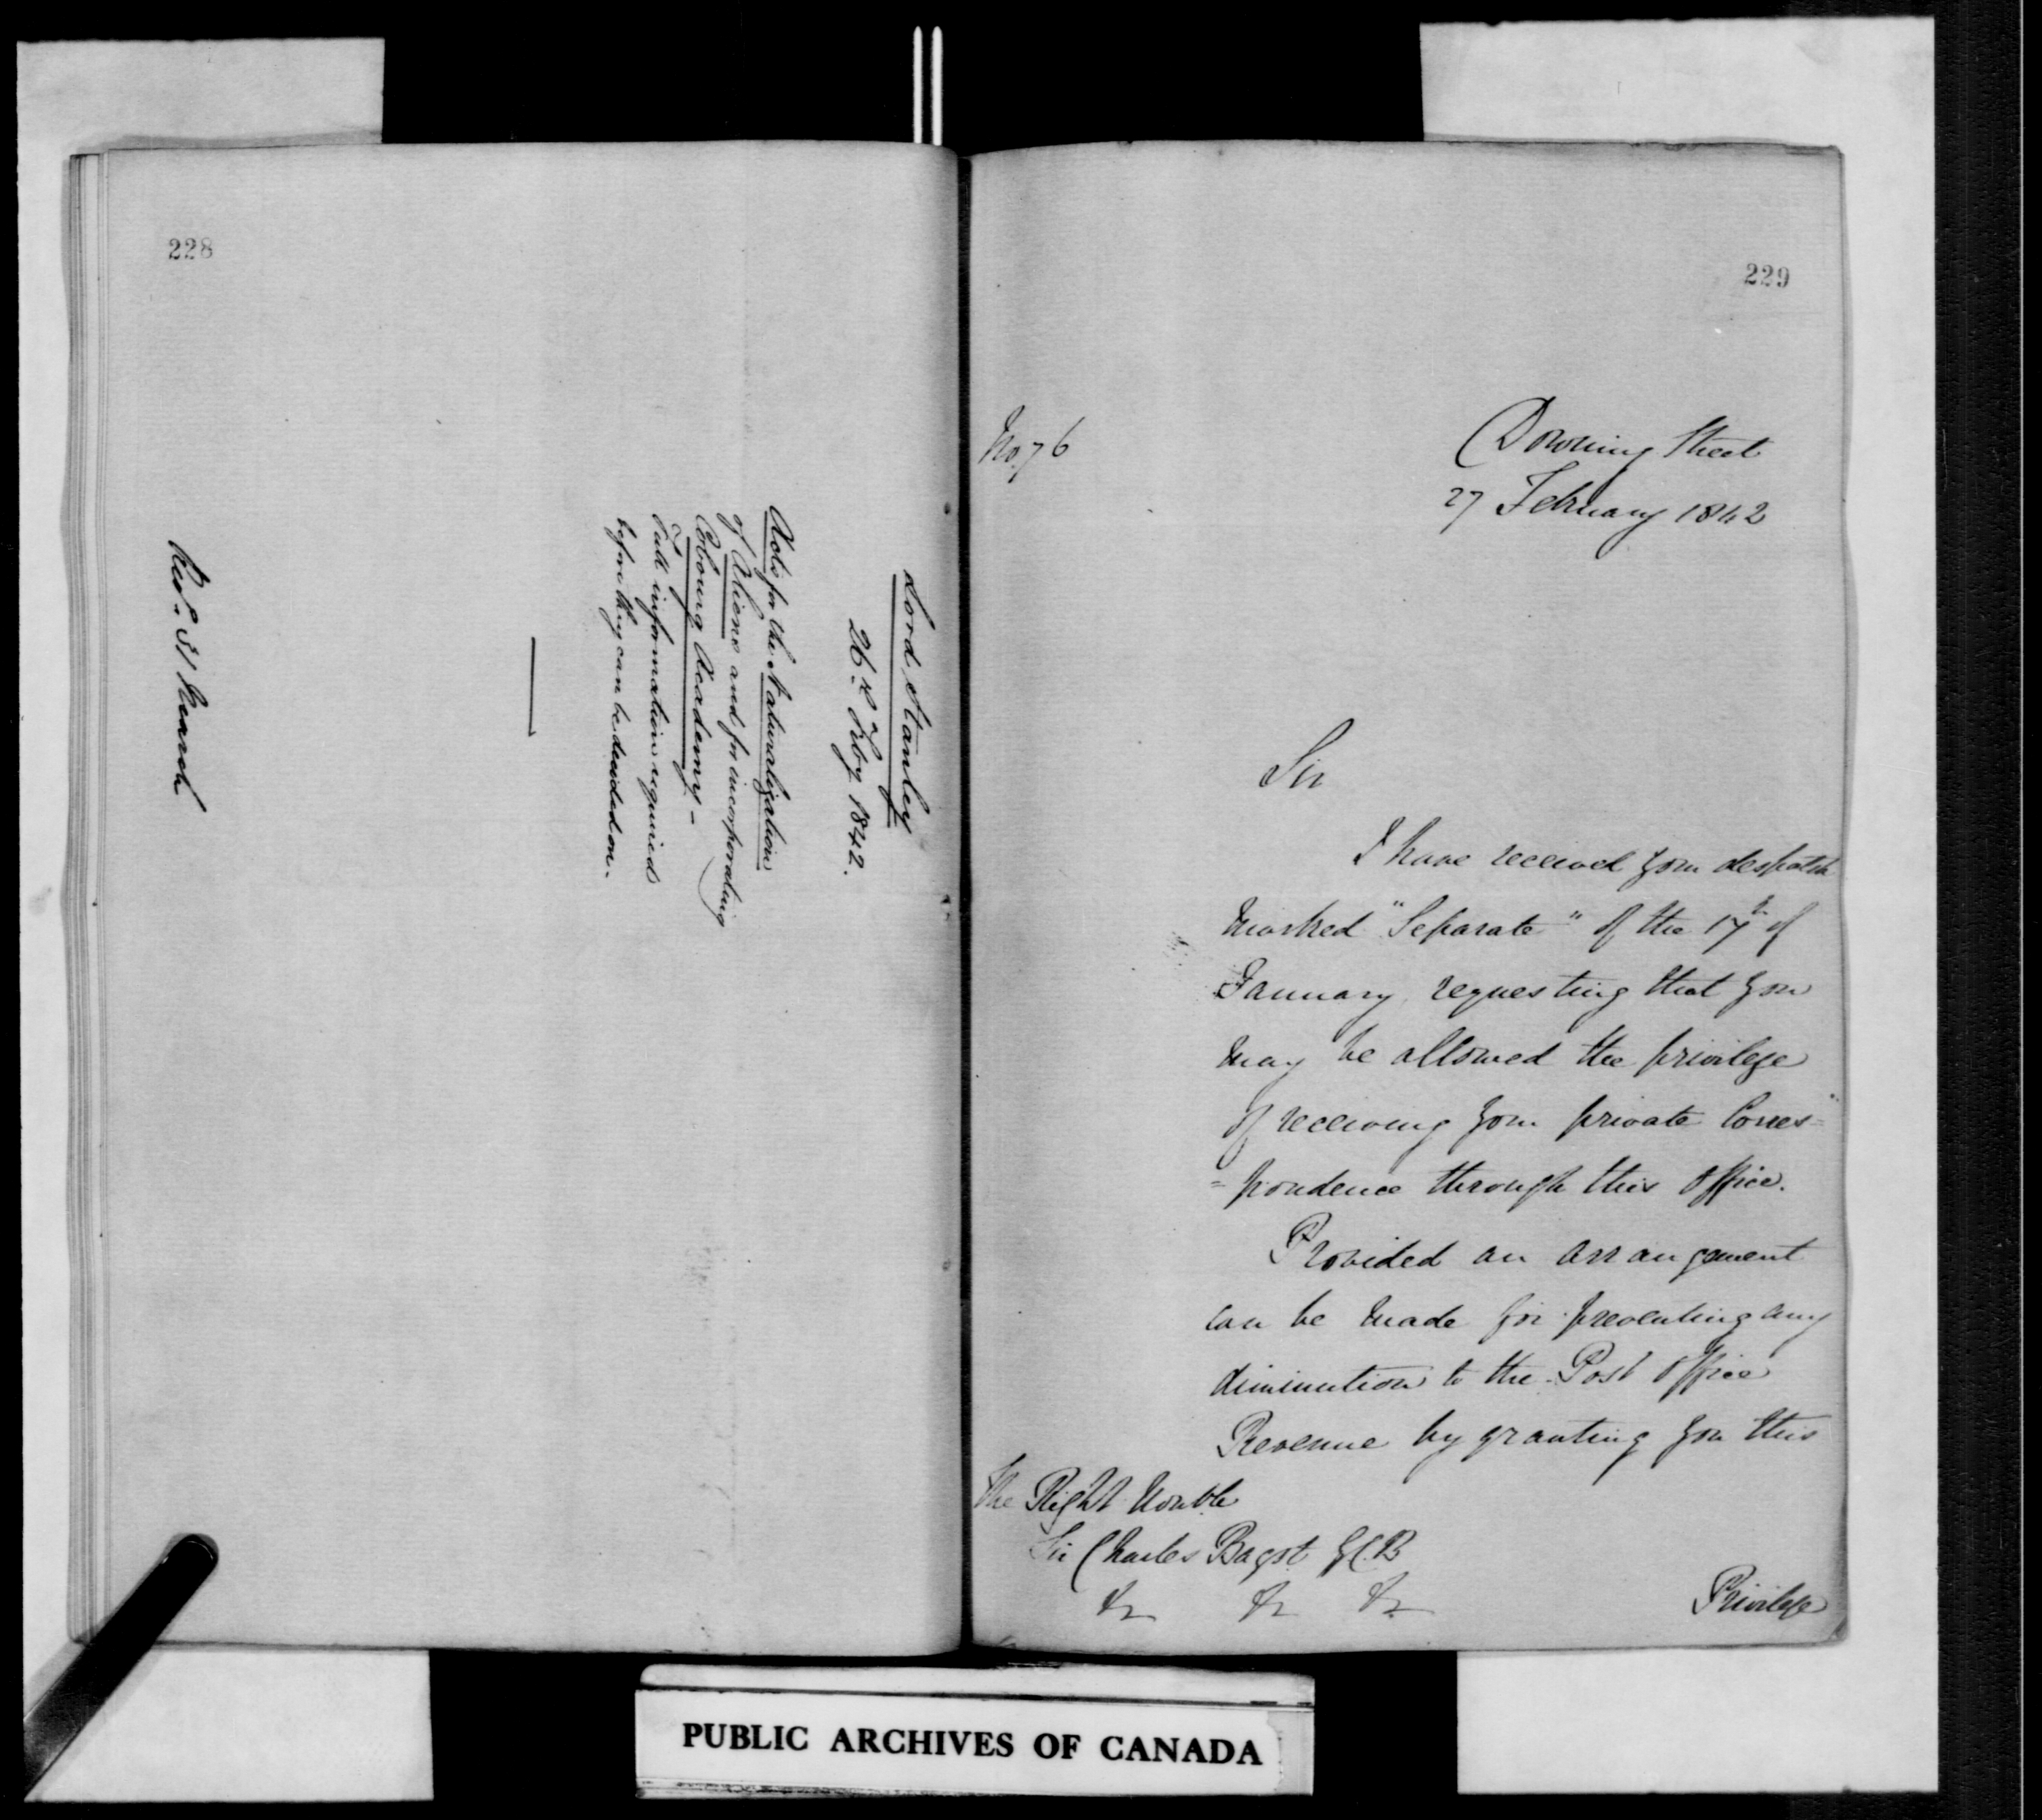 228
Lord Stanley
26th Feby 1842.
Acts for the Naturalization
of Aliens and for incorporating
Cobourg Academy -
Full information required
before they can be decided on.
Recd 31 March
229
No. 76
Downing Street
27 February 1842
Sir
I have received your despatch
marked "Separate" of the 17th of
January, requesting that you
may be allowed the privilege
of receiving your private Corres=
=pondence through this Office.
Provided an arrangement
can be made for preventing any
diminution to the Post Office
Revenue by granting you this
The Right Honble
Sir Charles Bagot GCB
&c &c &c
Privilege
PUBLIC ARCHIVES OF CANADA